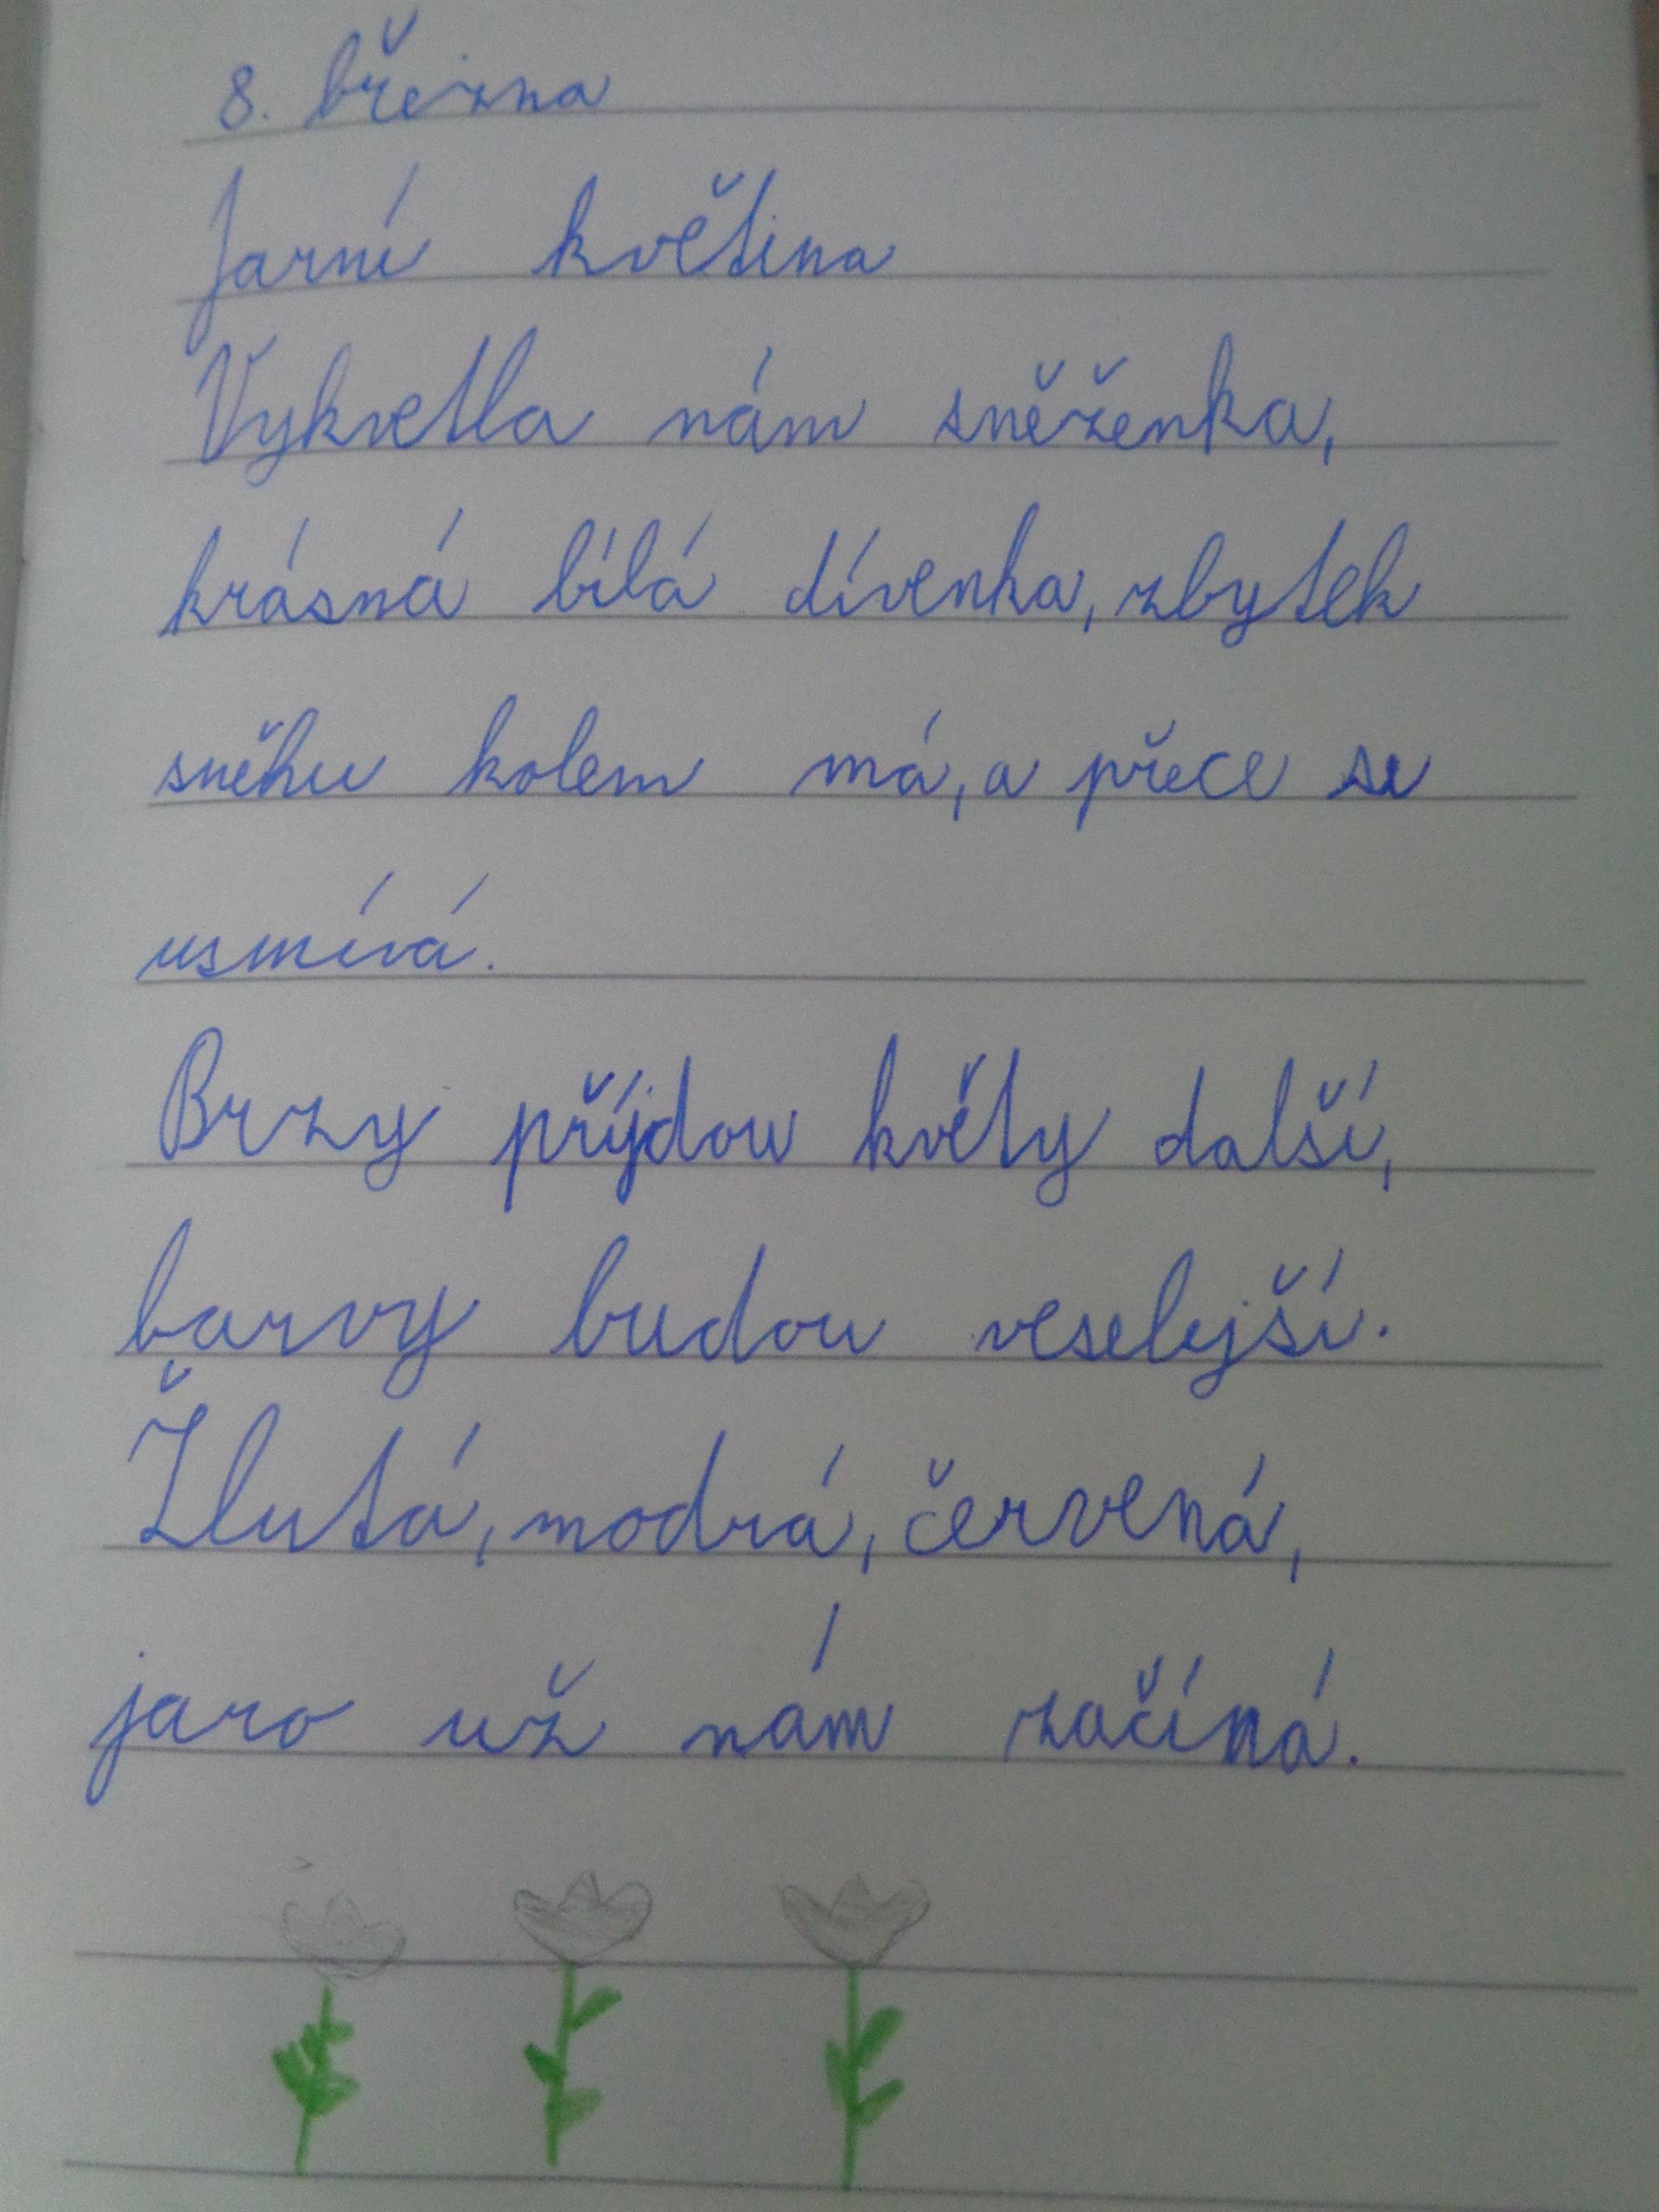 8. března
Jarní květina
Vykvetla nám sněženka,
krásná bílá dívenka, zbytek
sněhu kolem má, a přece se
usmívá.
Brzy příjdou květy další,
barvy budou veselejší.
Žlutá, modrá, červená,
jaro už nám začíná.